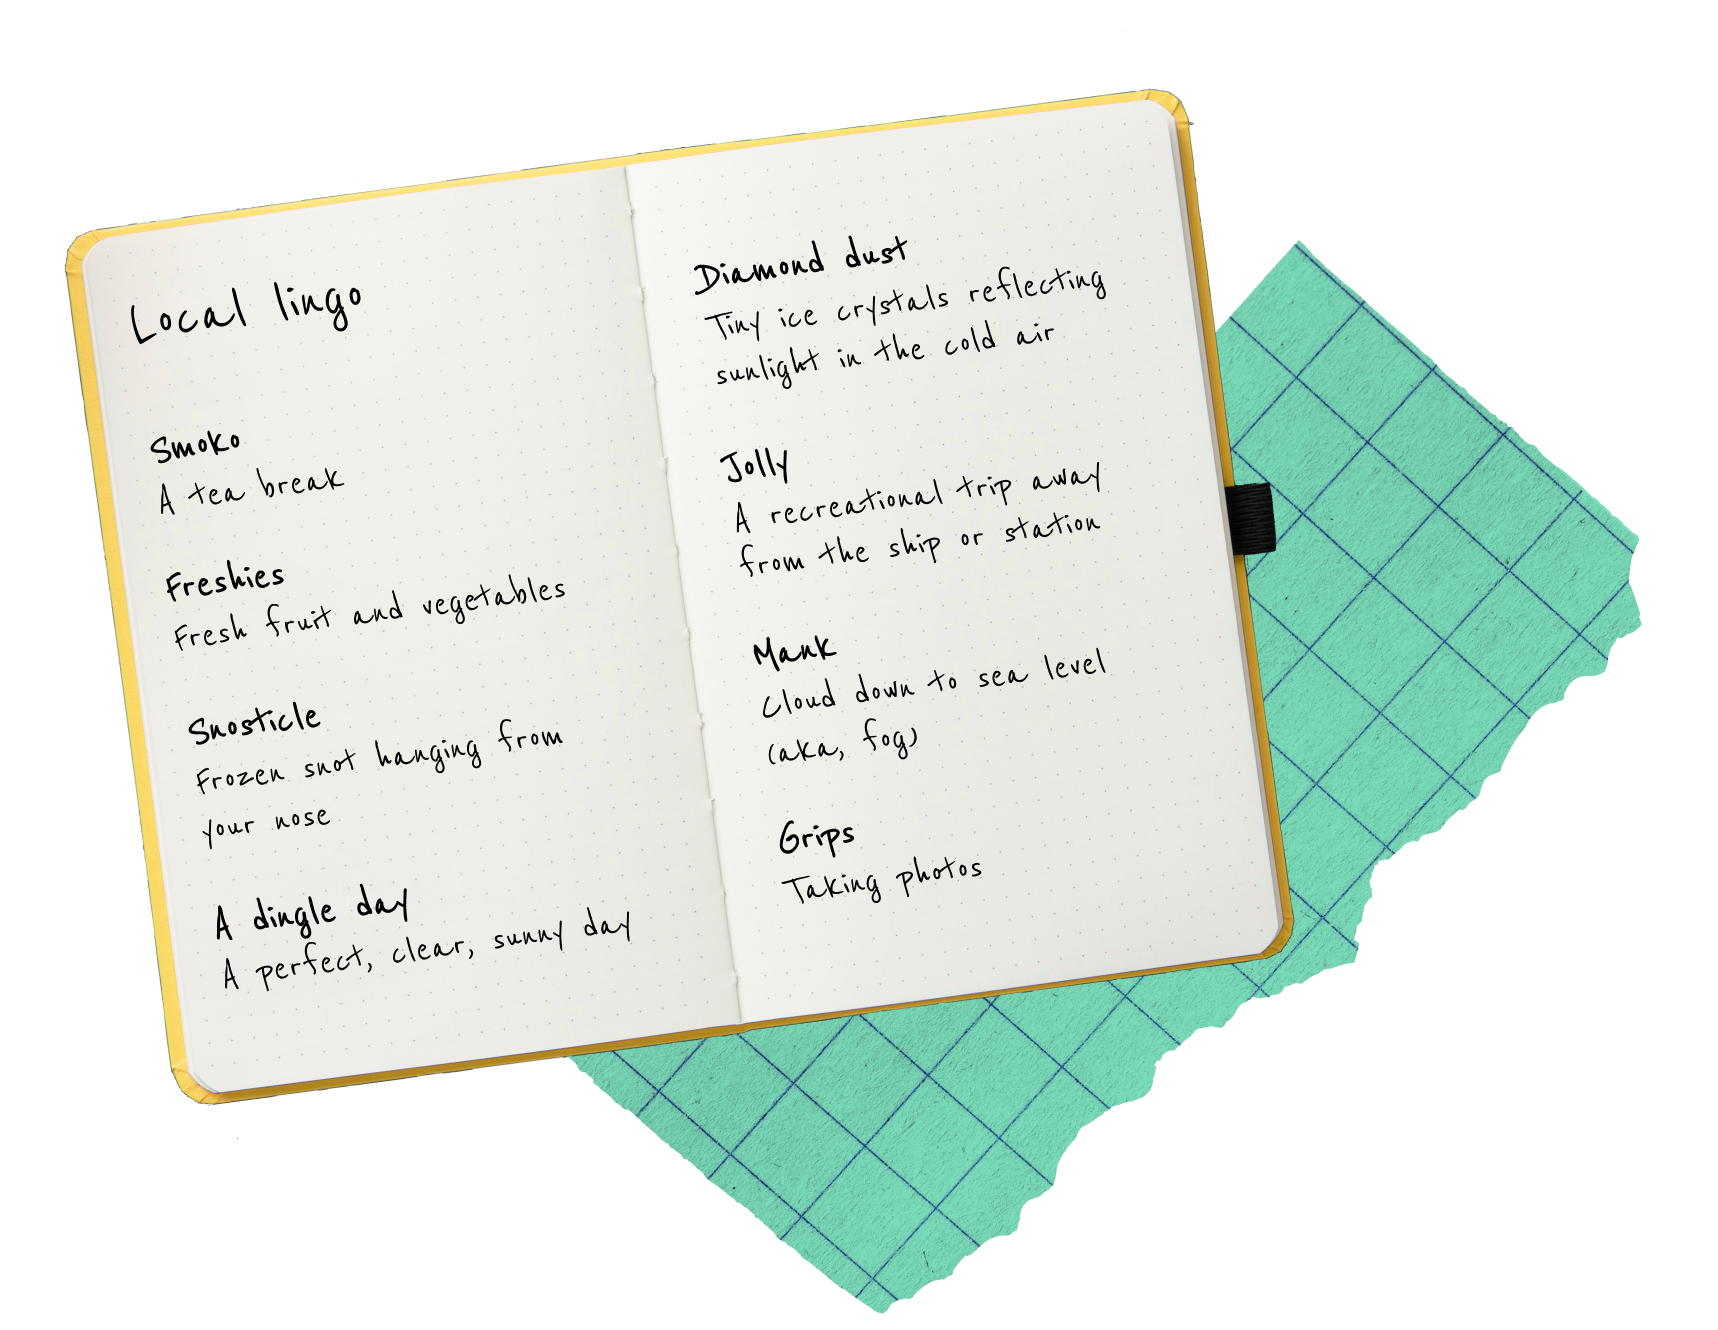 Local lingo
Smoko
A tea break
Freshies
Fresh fruit and vegetables
Snosticle
Frozen snot hanging from
your nose
A dingle day
A perfect, clear, sunny day
Diamond dust
Tiny ice crystals reflecting
sunlight in the cold air
Jolly
A recreational trip away
from the ship or station
Mank
Cloud down to sea level
(aka, fog)
Grips
Taking photos